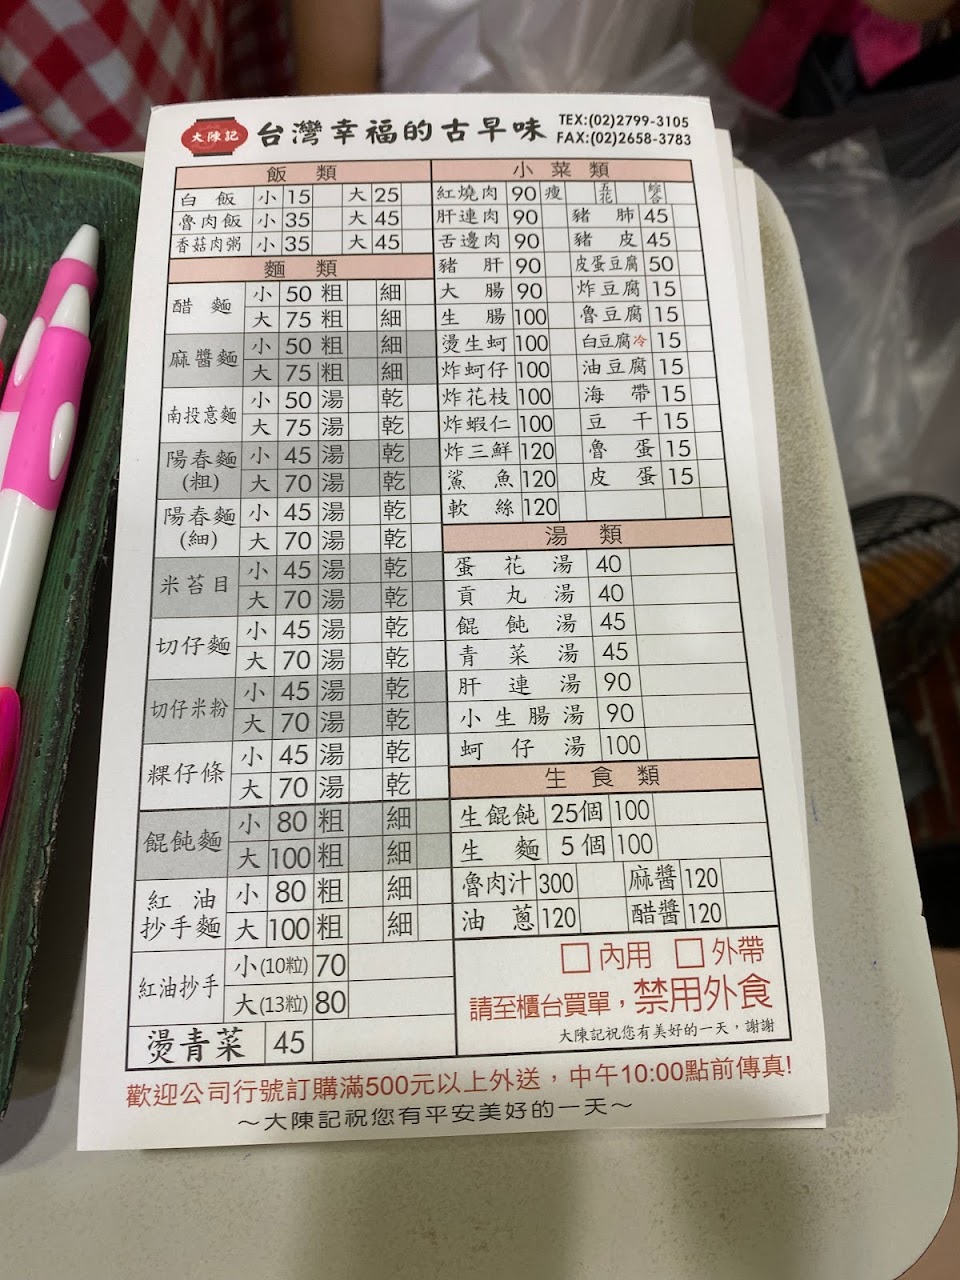 大陳記 台灣幸福的古早味
TEX:(02)2799-3105
FAX:(02)2658-3783
飯類
白飯 小 15 大 25
魯肉飯 小 35 大 45
香菇肉粥 小 35 大 45
麵類
醋麵 小 50 粗 細
大 75 粗 細
麻醬麵 小 50 粗 細
大 75 粗 細
南投意麵 小 50 湯 乾
大 75 湯 乾
陽春麵(粗) 小 45 湯 乾
大 70 湯 乾
陽春麵(細) 小 45 湯 乾
大 70 湯 乾
米苔目 小 45 湯 乾
大 70 湯 乾
切仔麵 小 45 湯 乾
大 70 湯 乾
切仔米粉 小 45 湯 乾
大 70 湯 乾
粿仔條 小 45 湯 乾
大 70 湯 乾
餛飩麵 小 80 粗 細
大 100 粗 細
紅油抄手麵 小 80 粗 細
大 100 粗 細
紅油抄手 小(10粒) 70
大(13粒) 80
燙青菜 45
小菜類
紅燒肉 90 瘦 五花 綜合
肝連肉 90 豬肺 45
舌邊肉 90 豬皮 45
豬肝 90 皮蛋豆腐 50
大腸 90 炸豆腐 15
生腸 100 魯豆腐 15
燙生蚵 100 白豆腐冷 15
炸蚵仔 100 油豆腐 15
炸花枝 100 海帶 15
炸蝦仁 100 豆干 15
炸三鮮 120 魯蛋 15
鯊魚 120 皮蛋 15
軟絲 120
湯類
蛋花湯 40
貢丸湯 40
餛飩湯 45
青菜湯 45
肝連湯 90
小生腸湯 90
蚵仔湯 100
生食類
生餛飩 25個 100
生麵 5個 100
魯肉汁 300 麻醬 120
油蔥 120 醋醬 120
□ 內用 □ 外帶
請至櫃台買單，禁用外食
大陳記祝您有美好的一天，謝謝
歡迎公司行號訂購滿500元以上外送，中午10:00點前傳真!
～大陳記祝您有平安美好的一天～